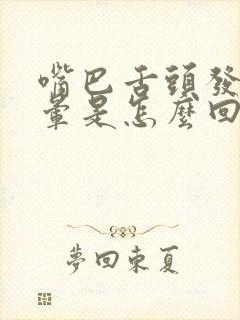 嘴巴舌頭發
暈是怎麼回
夢回東夏